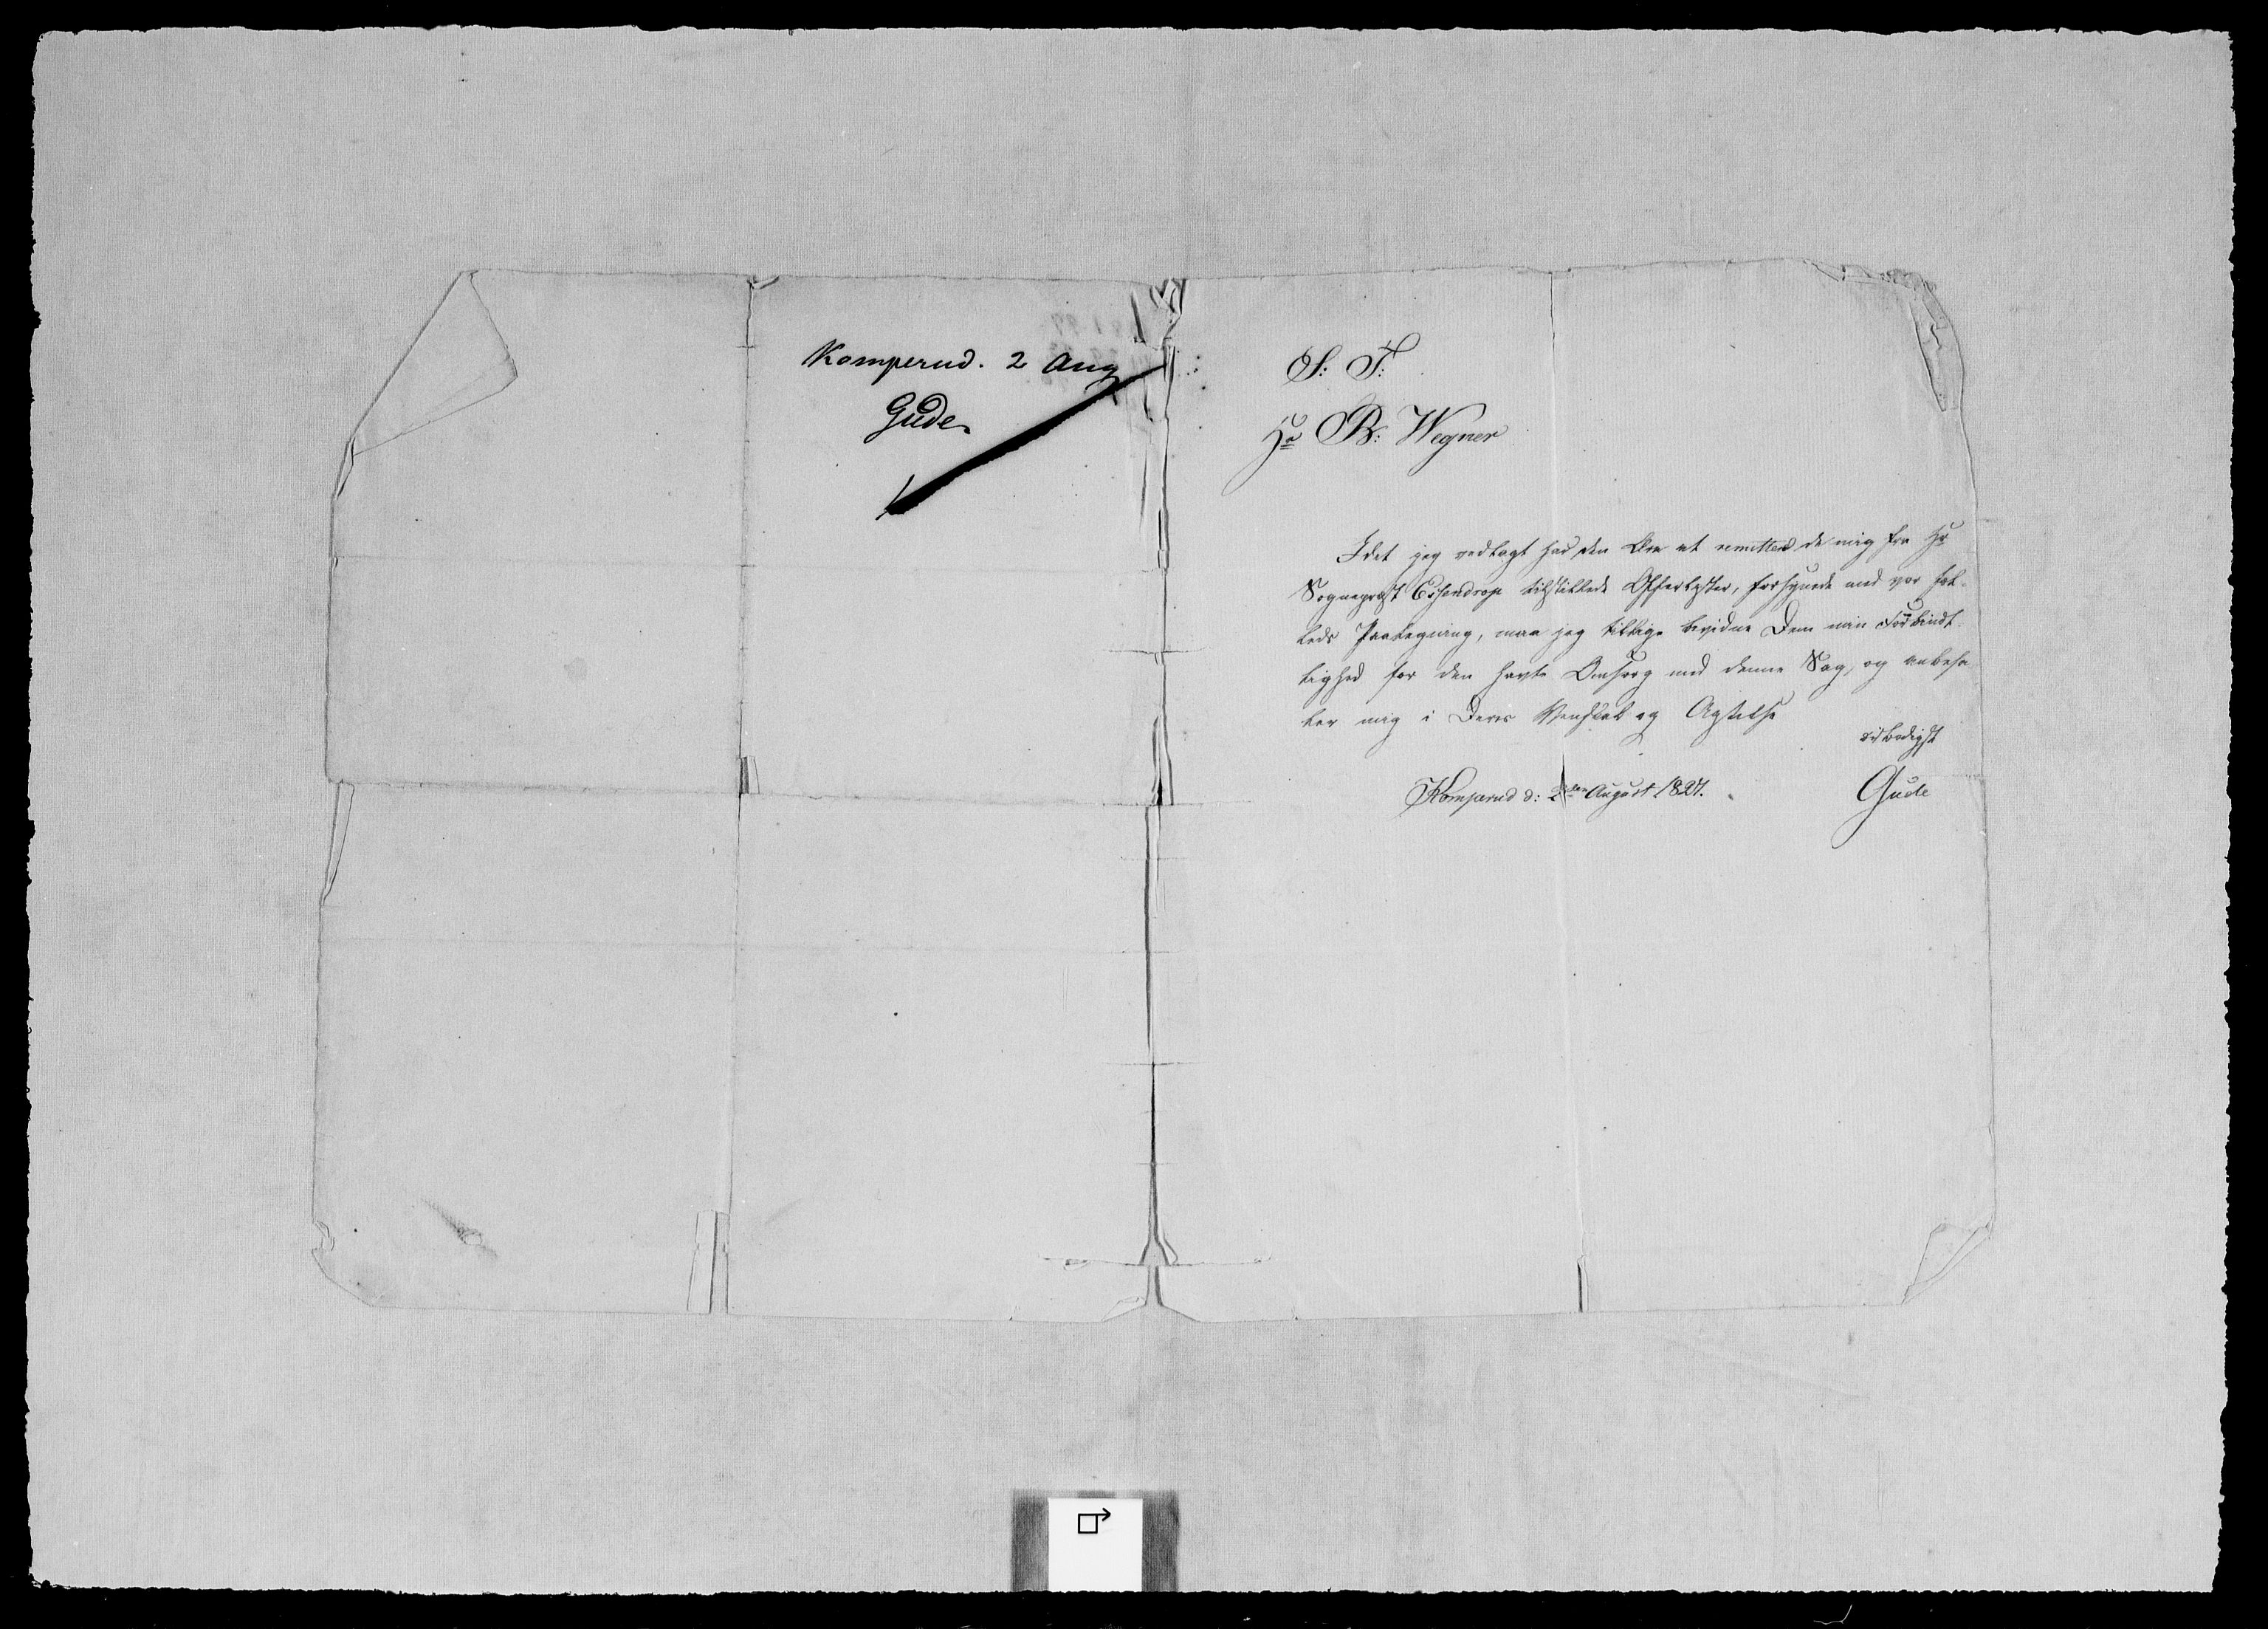 Komperud. 2 Aug
Gude.
S: T:
Hr B: Wegner
Idet jeg vedlagt har den Ære at remittere de mig fra Hr
Sognepræst Essendrop tilstillede Offerlyster, forsynede med vor fæl-
leds Paategning, maa jeg tillige bevidne Dem min Forbindt-
lighed for den havte Omsorg med denne Sag, og anbefa-
ler mig i Deres Venskab og Agtelse
ærbødigst
Komperud d: 2den August 1827.
Gude